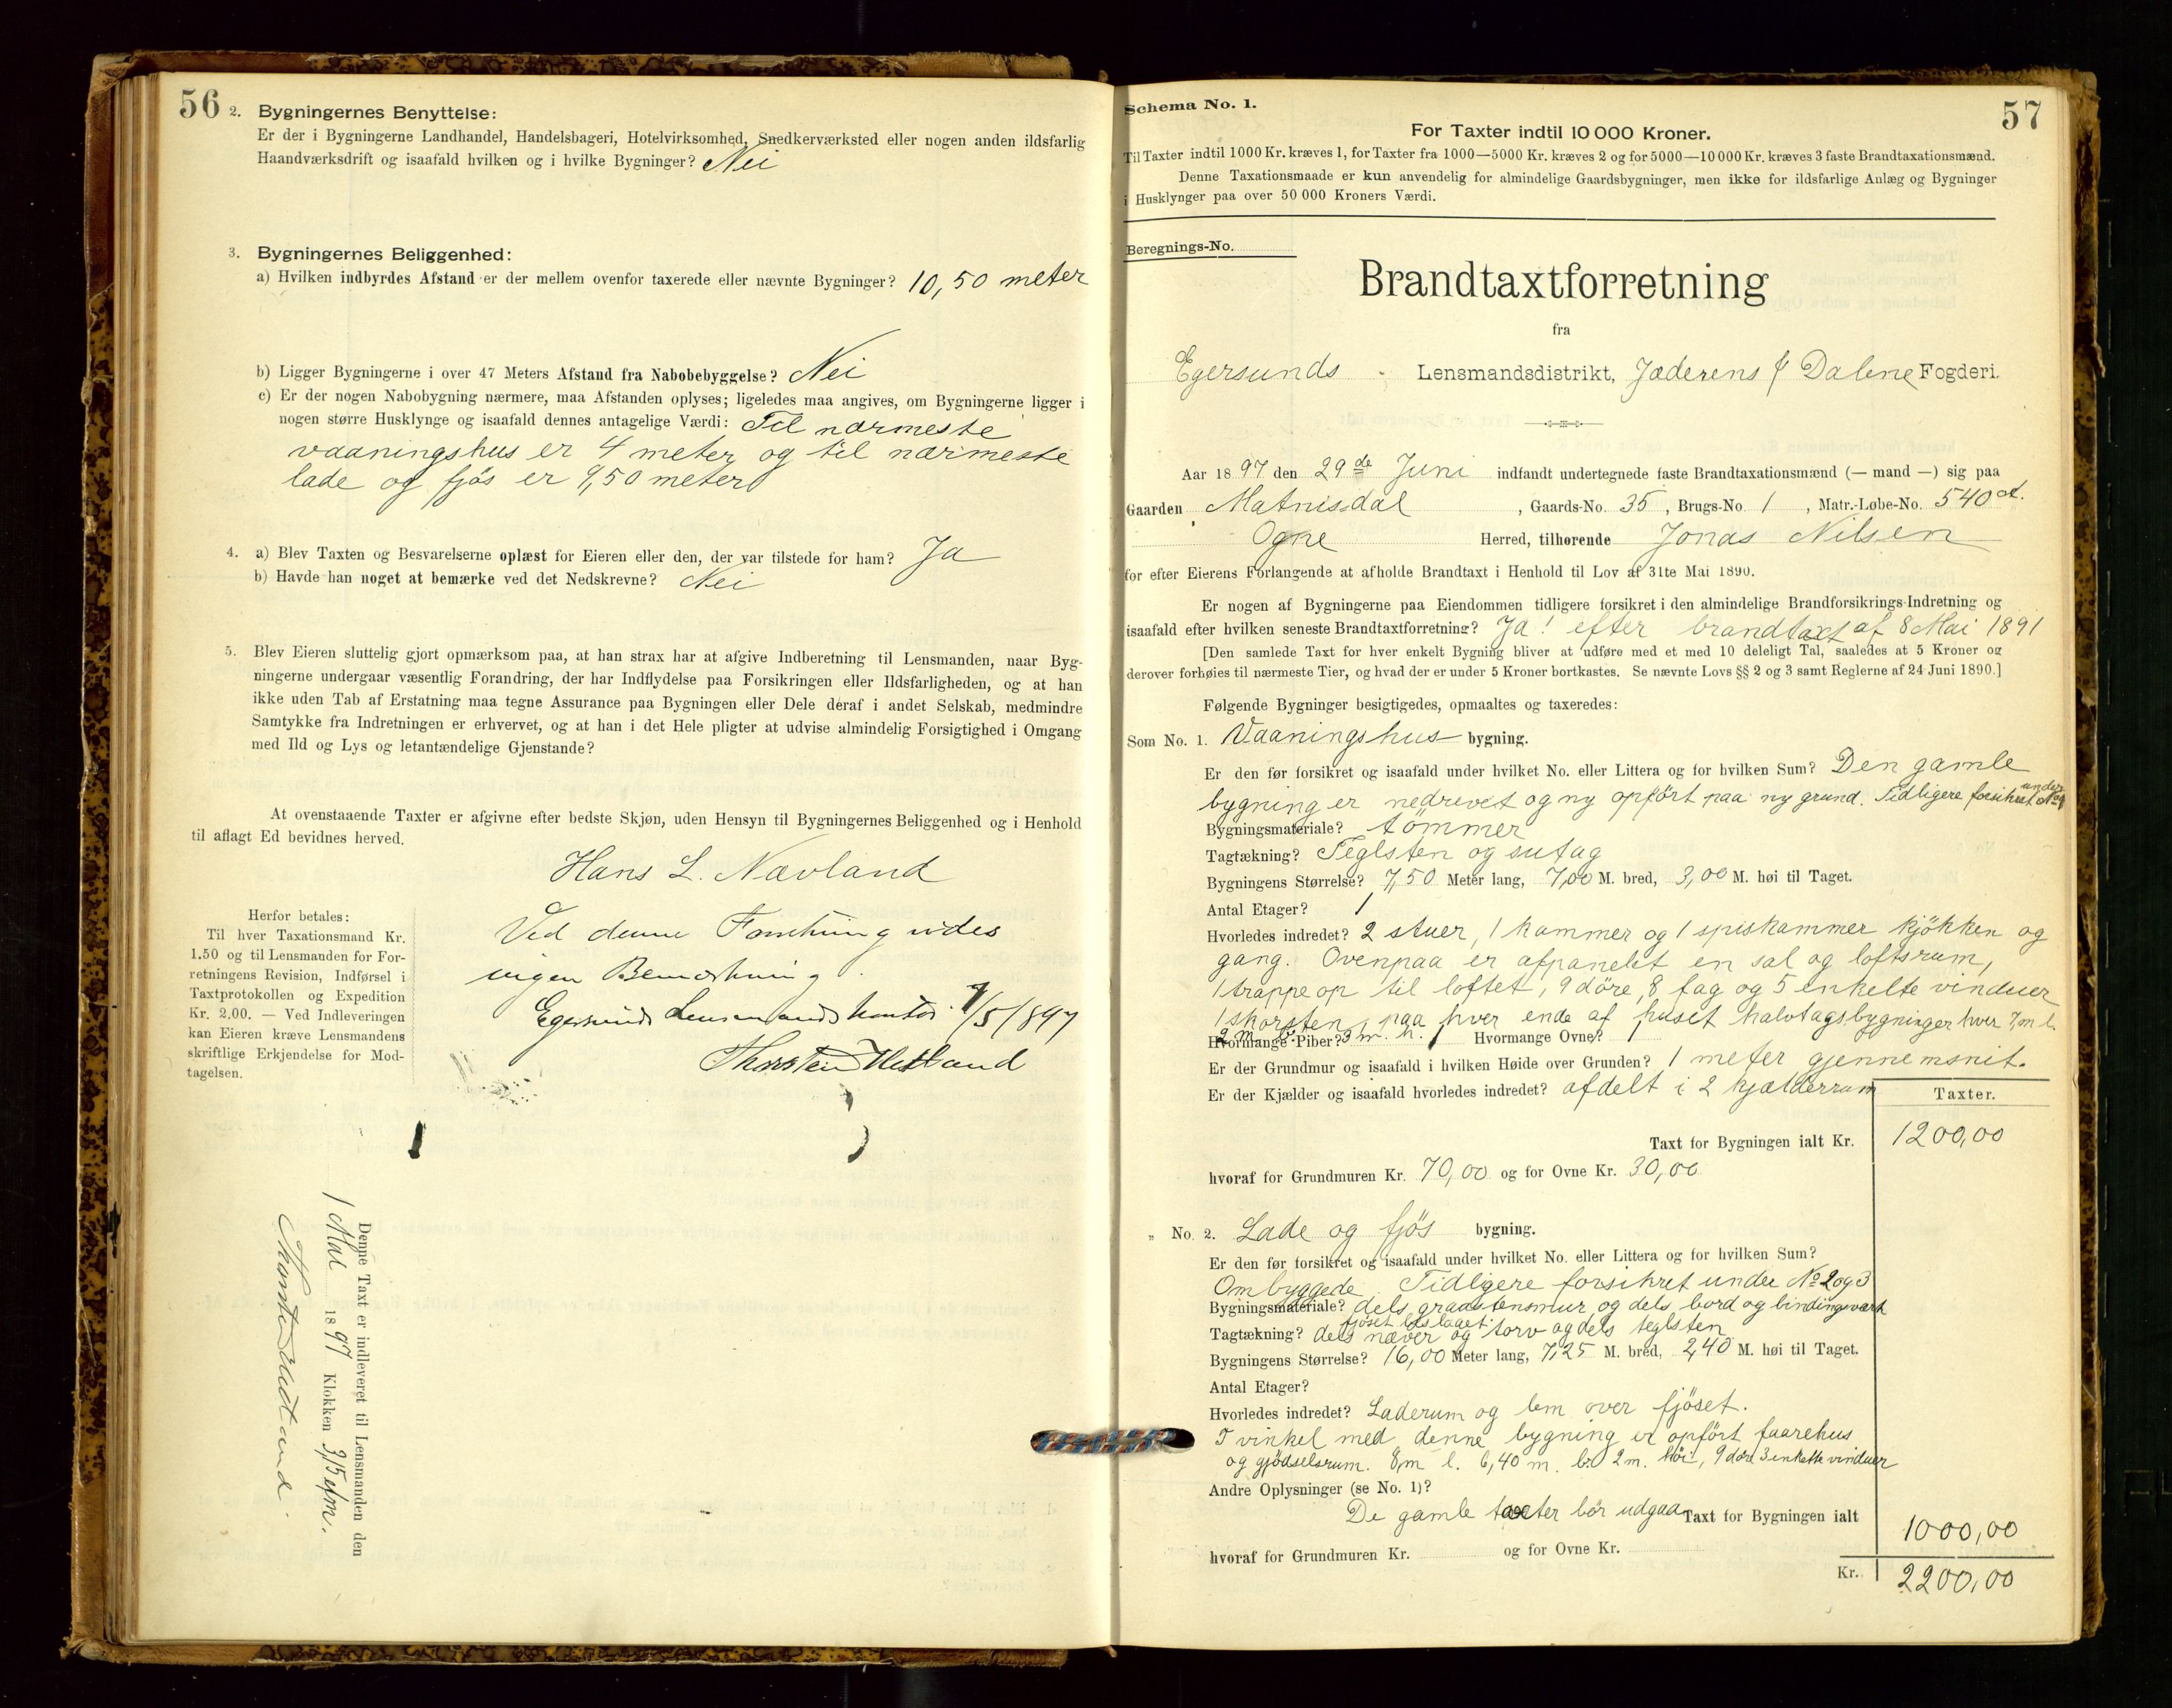 56
2. Bygningernes Benyttelse:
Er der i Bygningerne Landhandel, Handelsbageri, Hotelvirksomhed, Snedkerværksted eller nogen anden ildsfarlig
Haandværksdrift og isaafald hvilken og i hvilke Bygninger? Nei
3. Bygningernes Beliggenhed:
a) Hvilken indbyrdes Afstand er der mellem ovenfor taxerede eller nævnte Bygninger? 10,50 meter
b) Ligger Bygningerne i over 47 Meters Afstand fra Nabobebyggelse? Nei
c) Er der nogen Nabobygning nærmere, maa Afstanden oplyses; ligeledes maa angives, om Bygningerne ligger i
nogen større Husklynge og isaafald dennes antagelige Værdi: Til nærmeste
vaaningshus er 4 meter og til nærmeste
lade og fjös er 9,50 meter
4. a) Blev Taxten og Besvarelserne oplæst for Eieren eller den, der var tilstede for ham? Ja
b) Havde han noget at bemærke ved det Nedskrevne? Nei
5. Blev Eieren sluttelig gjort opmærksom paa, at han strax har at afgive Indberetning til Lensmanden, naar Byg-
ningerne undergaar væsentlig Forandring, der har Indflydelse paa Forsikringen eller Ildsfarligheden, og at han
ikke uden Tab af Erstatning maa tegne Assurance paa Bygningen eller Dele deraf i andet Selskab, medmindre
Samtykke fra Indretningen er erhvervet, og at han i det Hele pligter at udvise almindelig Forsigtighed i Omgang
med Ild og Lys og letantændelige Gjenstande?
At ovenstaaende Taxter er afgivne efter bedste Skjøn, uden Hensyn til Bygningernes Beliggenhed og i Henhold
til aflagt Ed bevidnes herved.
Hans L. Nævland
Herfor betales:
Til hver Taxationsmand Kr.
1.50 og til Lensmanden for For-
retningens Revision, Indførsel i
Taxtprotokollen og Expedition
Kr. 2.00. — Ved Indleveringen
kan Eieren kræve Lensmandens
skriftlige Erkjendelse for Mod-
tagelsen.
Ved denne Forretning vides
ingen Bemærkning.
Egersunds Lensmandskontor /5/1897
Thorsten Hetland
Denne Taxt er indleveret til Lensmanden den
1 Mai 1897 Klokken 3/5 efm.
Thorsten Hetland.
57
Schema No. 1.
For Taxter indtil 10 000 Kroner.
Til Taxter indtil 1000 Kr. kræves 1, for Taxter fra 1000—5000 Kr. kræves 2 og for 5000—10 000 Kr. kræves 3 faste Brandtaxationsmænd.
Denne Taxationsmaade er kun anvendelig for almindelige Gaardsbygninger, men ikke for ildsfarlige Anlæg og Bygninger
i Husklynger paa over 50 000 Kroners Værdi.
Beregnings-No.
Brandtaxtforretning
fra
Egersunds Lensmandsdistrikt, Jæderens & Dalene Fogderi.
Aar 1897 den 29de Juni indfandt undertegnede faste Brandtaxationsmænd (— mand —) sig paa
Gaarden Matnisdal, Gaards-No. 35, Brugs-No. 1, Matr.-Løbe-No. 540 a.
Ogne Herred, tilhørende Jonas Nilsen
for efter Eierens Forlangende at afholde Brandtaxt i Henhold til Lov af 31te Mai 1890.
Er nogen af Bygningerne paa Eiendommen tidligere forsikret i den almindelige Brandforsikrings-Indretning og
isaafald efter hvilken seneste Brandtaxtforretning? Ja! efter brandtaxt af 8 Mai 1891
[Den samlede Taxt for hver enkelt Bygning bliver at udføre med et med 10 deleligt Tal, saaledes at 5 Kroner og
derover forhøies til nærmeste Tier, og hvad der er under 5 Kroner bortkastes. Se nævnte Lovs §§ 2 og 3 samt Reglerne af 24 Juni 1890.]
Følgende Bygninger besigtigedes, opmaaltes og taxeredes:
Som No. 1. Vaaningshus bygning.
Er den før forsikret og isaafald under hvilket No. eller Littera og for hvilken Sum? Den gamle
bygning er nedrevet og ny opfört paa ny grund. Tidligere forsikret under No 1
Bygningsmateriale? tömmer
Tagtækning? Teglsten og sutag
Bygningens Størrelse? 7,50 Meter lang, 7,00 M. bred, 3,00 M. høi til Taget.
Antal Etager? 1
Hvorledes indredet? 2 stuer, 1 kammer og 1 spiskammer kjökken og
gang. Ovenpaa er afpanelet en sal og loftsrum,
1 trappe op til loftet, 9 döre, 8 fag og 5 enkelte vinduer
1 skorsten, paa hver ende af huset halvtagsbygninger hver 7 m l.
2 m b. 3 m. h.
Hvormange Piber? 1 Hvormange Ovne? 1
Er der Grundmur og isaafald i hvilken Høide over Grunden? 1 meter gjennemsnit.
Er der Kjælder og isaafald hvorledes indredet? afdelt i 2 kjælderrum
Taxter.
Taxt for Bygningen ialt Kr. 1200,00
hvoraf for Grundmuren Kr. 70,00 og for Ovne Kr. 30,00
„ No. 2. Lade og fjös bygning.
Er den før forsikret og isaafald under hvilket No. eller Littera og for hvilken Sum?
Ombyggede. Tidligere forsikret under No 2 og 3
Bygningsmateriale? dels graastensmur og dels bord og bindingsværk
Tagtækning? dels næver og torv og dels teglsten
Bygningens Størrelse? 16,00 Meter lang, 7,25 M. bred, 2,40 M. høi til Taget.
Antal Etager?
Hvorledes indredet? Laderum og lem over fjöset.
I vinkel med denne bygning er opfört faarehus
og gjödselsrum. 8 m l. 6,40 m. b. 2 m. höi, 9 döre 3 enkelte vinduer
Andre Oplysninger (se No. 1)?
De gamle taxter bör udgaa Taxt for Bygningen ialt 1000,00
hvoraf for Grundmuren Kr. og for Ovne Kr.
Kr. 2200,00